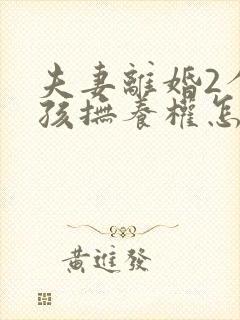 夫妻離婚2個
孩撫養權怎
黃進發